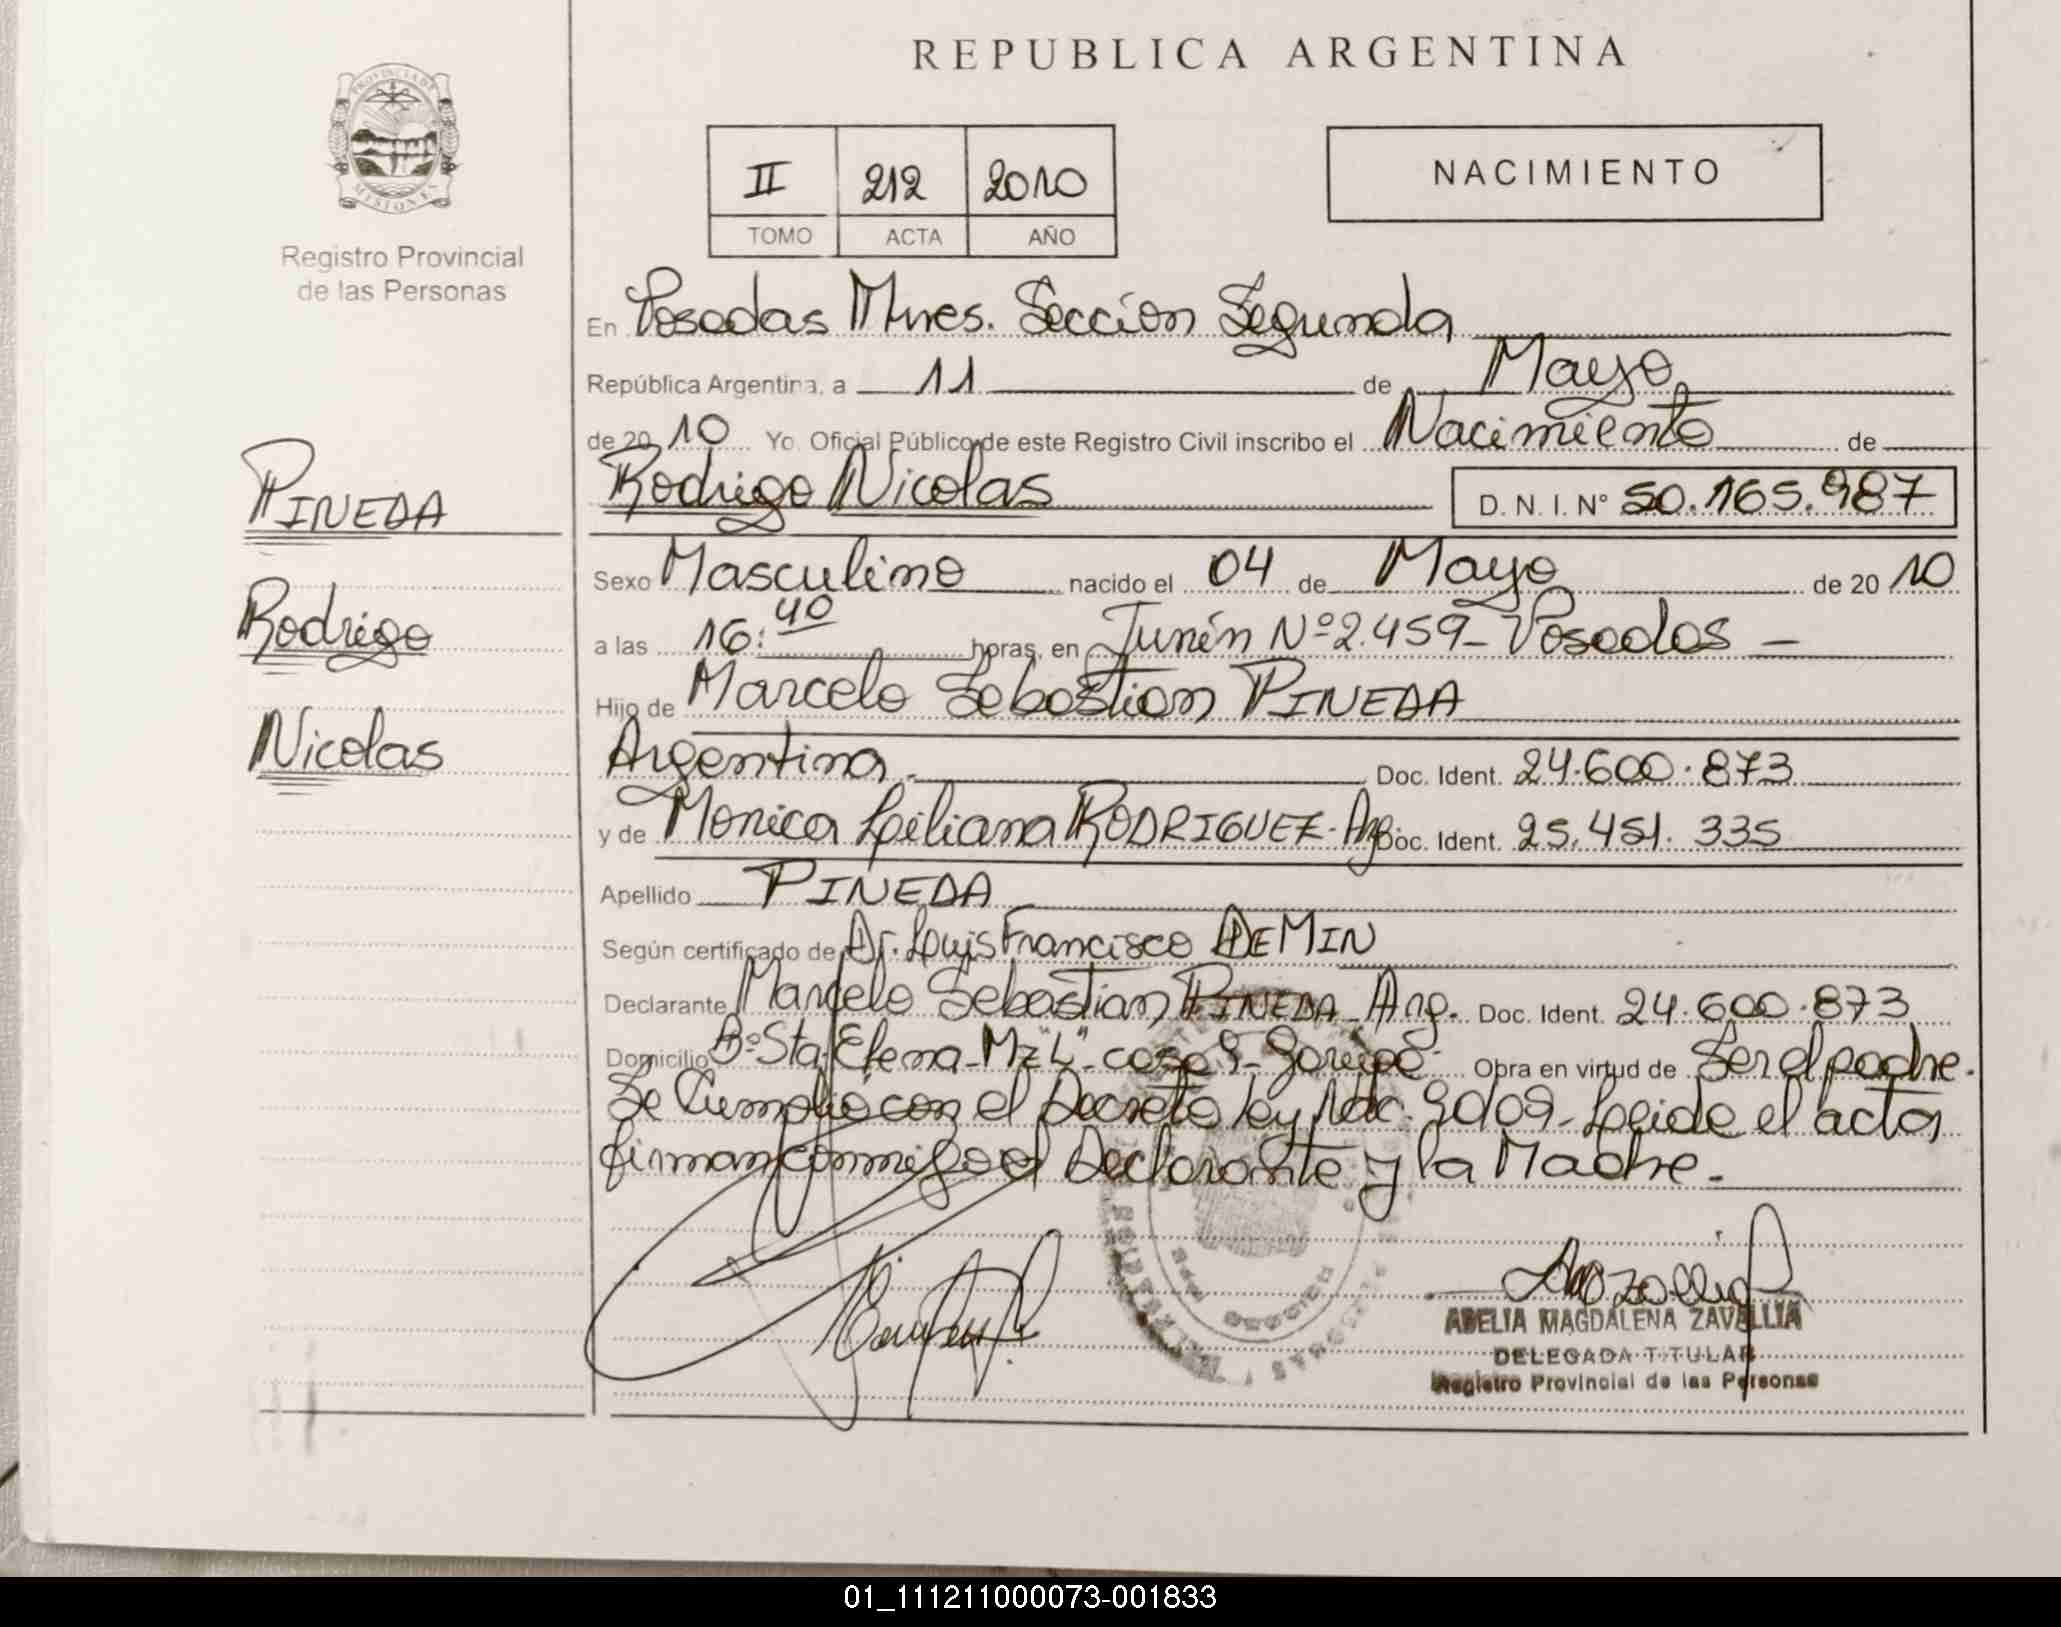 REPUBLICA ARGENTINA
PROVINCIA DE
MISIONES
Registro Provincial
de las Personas
II 212 2010
TOMO ACTA AÑO
NACIMIENTO
En Posadas Mnes. Sección Segunda
República Argentina, a 11 de Mayo
de 2010 Yo. Oficial Público de este Registro Civil inscribo el Nacimiento de
PINEDA
Rodrigo
Nicolas
Rodrigo Nicolas D. N. I. Nº 50.165.987
Sexo Masculino nacido el 04 de Mayo de 2010
a las 16:40 horas, en Junín Nº 2.459 - Posadas -
Hijo de Marcelo Sebastian PINEDA
Argentina. Doc. Ident. 24.600.873
y de Monica Liliana RODRIGUEZ - Arg. Doc. Ident. 25.451.335
Apellido PINEDA
Según certificado de Dr. Luis Francisco DEMIN
Declarante Marcelo Sebastian PINEDA Arg. Doc. Ident. 24.600.873
Domicilio Bº Sta. Elena - Mz "L" - casa 9 - Garupá - Obra en virtud de Ser el padre.
Se Cumplió con el Decreto ley Nac. Leida el acta
firman conmigo el Declarante y la Madre.-
ABELIA MAGDALENA ZAVALLIA
DELEGADA TITULAR
Registro Provincial de las Personas
01_111211000073-001833